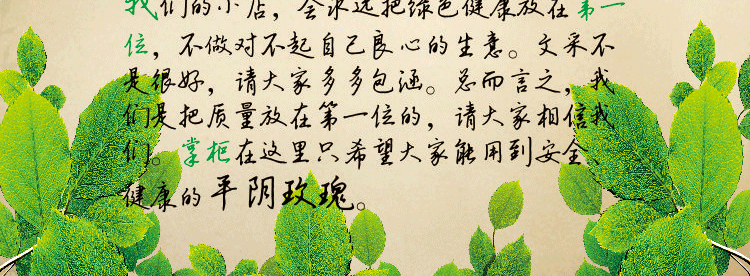 我们的小店，会永远把绿色健康放在第一
位，不做对不起自己良心的生意。文采不
是很好，请大家多多包涵。总而言之，我
们是把质量放在第一位的，请大家相信我
们。掌柜在这里只希望大家能用到安全、
健康的平阴玫瑰。